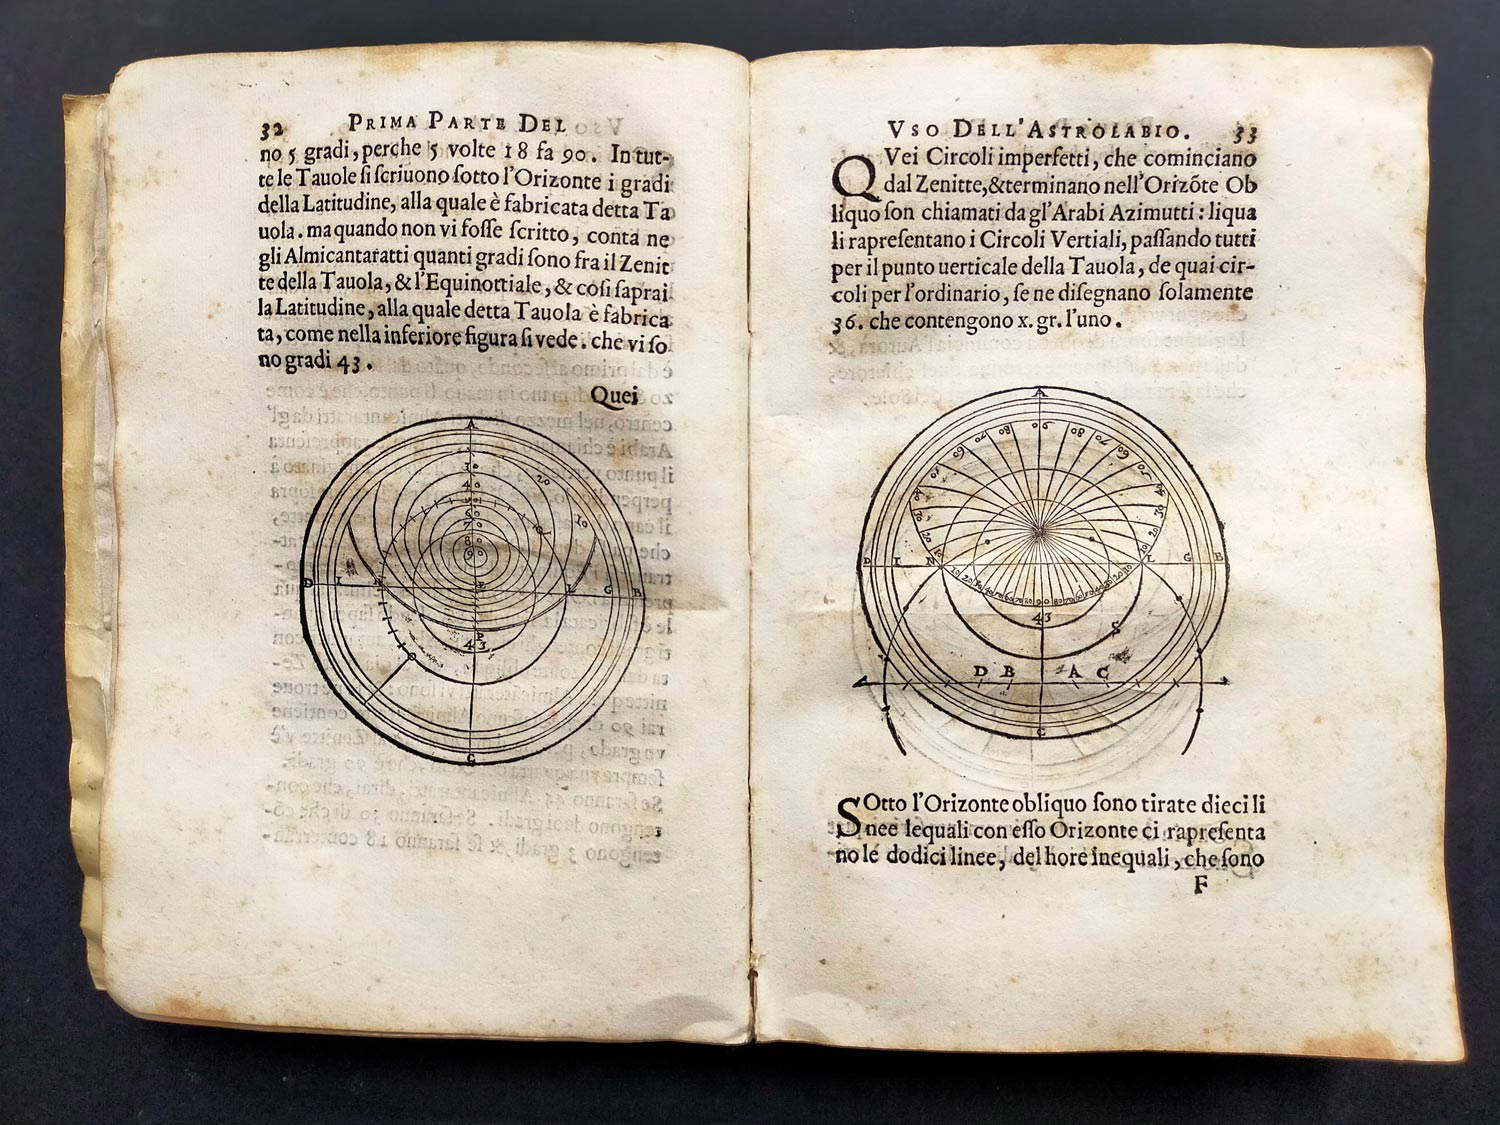 32 PRIMA PARTE DEL
no 5 gradi, perche 5 volte 18 fa 90. In tut-
te le Tauole si scriuono sotto l'Orizonte i gradi
della Latitudine, alla quale è fabricata detta Ta
uola. ma quando non vi fosse scritto, conta ne
gli Almicantaratti quanti gradi sono fra il Zenit
te della Tauola, & l'Equinottiale, & cosi saprai
la Latitudine, alla quale detta Tauola è fabrica
ta, come nella inferiore figura si vede. che vi so
no gradi 43.
Quei
A
30
40
20
10
60
70
80
90
D I N E L G B
P
43
C
VSO DELL'ASTROLABIO. 33
QVei Circoli imperfetti, che cominciano
dal Zenitte, & terminano nell'Orizõte Ob
liquo son chiamati da gl'Arabi Azimutti: liqua
li rapresentano i Circoli Vertiali, passando tutti
per il punto uerticale della Tauola, de quai cir-
coli per l'ordinario, se ne disegnano solamente
36. che contengono x. gr. l'uno.
A
70 80 90 80 70
60 60
50 50
40 40
30 30
20 20
10 10
D I N L G B
43
S
D B A C
C
SOtto l'Orizonte obliquo sono tirate dieci li
nee lequali con esso Orizonte ci rapresenta
no le dodici linee, del hore inequali, che sono
F